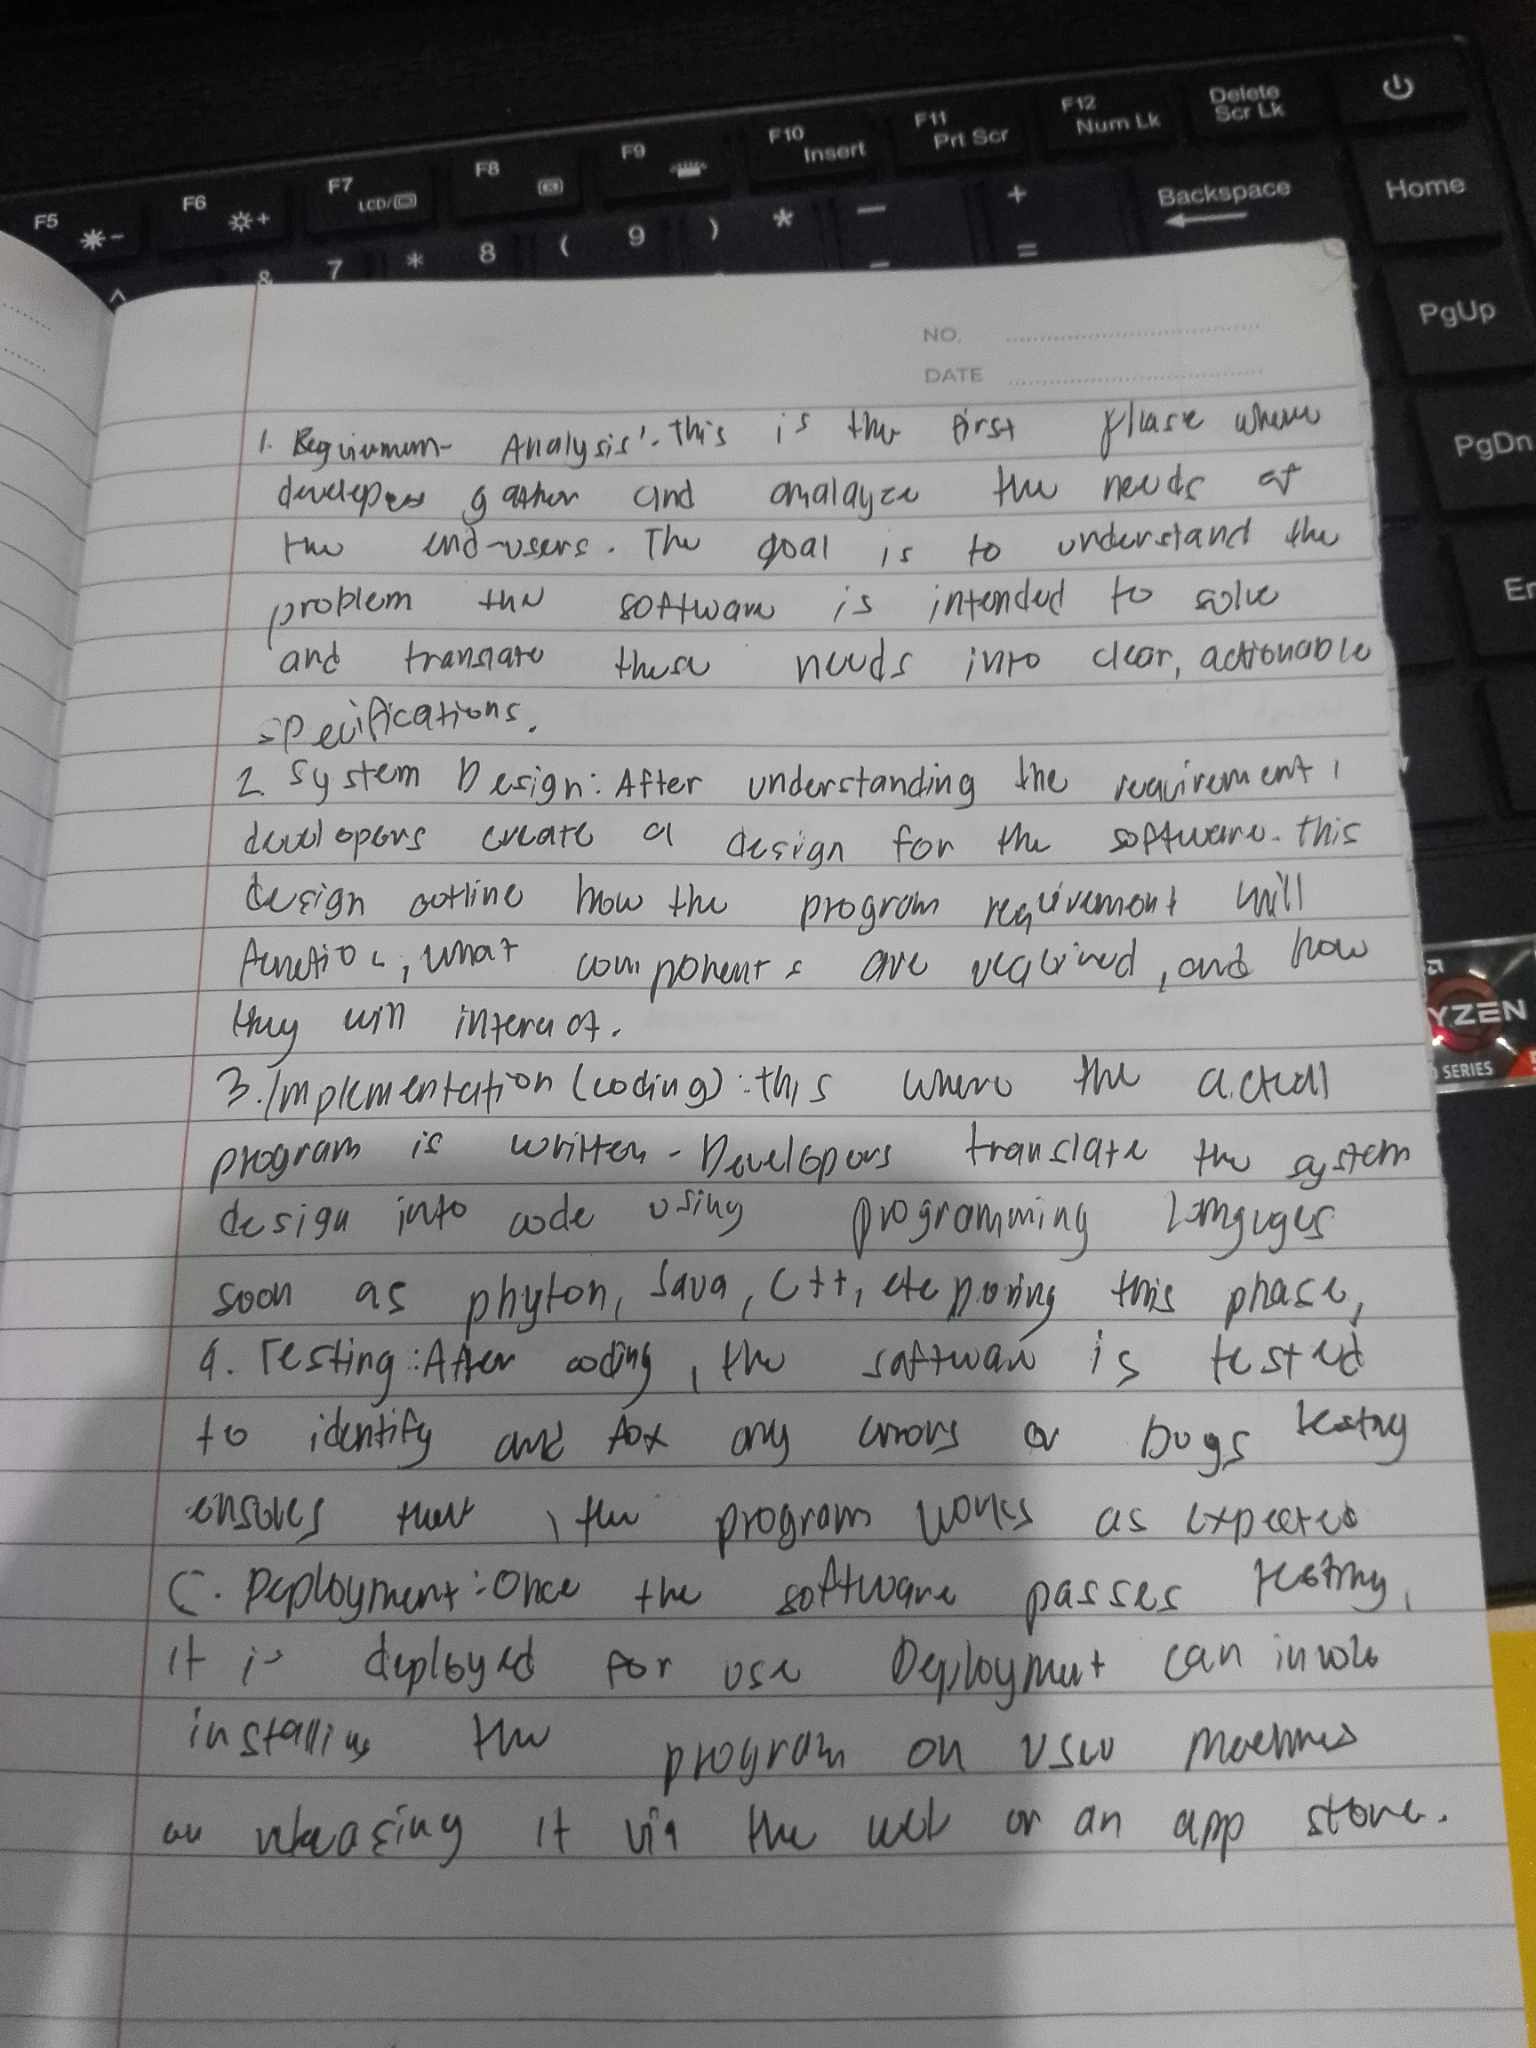 F5
F6
F7 LCD/
F8
F9
F10 Insert
F11 Prt Scr
F12 Num Lk
Delete Scr Lk
& 7 * 8 ( 9 ) * — - + =
Backspace
Home
PgUp
PgDn
NO.
DATE
1. Requirement Analysis: This is the first phase where
developers gather and analayze the needs of
the end-users. The goal is to understand the
problem the software is intended to solve
and translate these needs into clear, actionable
specifications.
2. System Design: After understanding the requirement,
developers create a design for the software. this
design outline how the program requirement will
function, what components are required, and how
they will interact.
3. Implementation (coding): this where the actual
program is written. Developers translate the system
design into code using programming languges
soon as phyton, Java, C++, etc During this phase,
4. Testing: After coding, the software is tested
to identify and fix any errors or bugs testing
ensures that, the program works as expected
5. Deployment: Once the software passes testing,
it is deployed for use Deployment can involve
installing the program on user machines
or releasing it via the web or an app store.
YZEN
SERIES